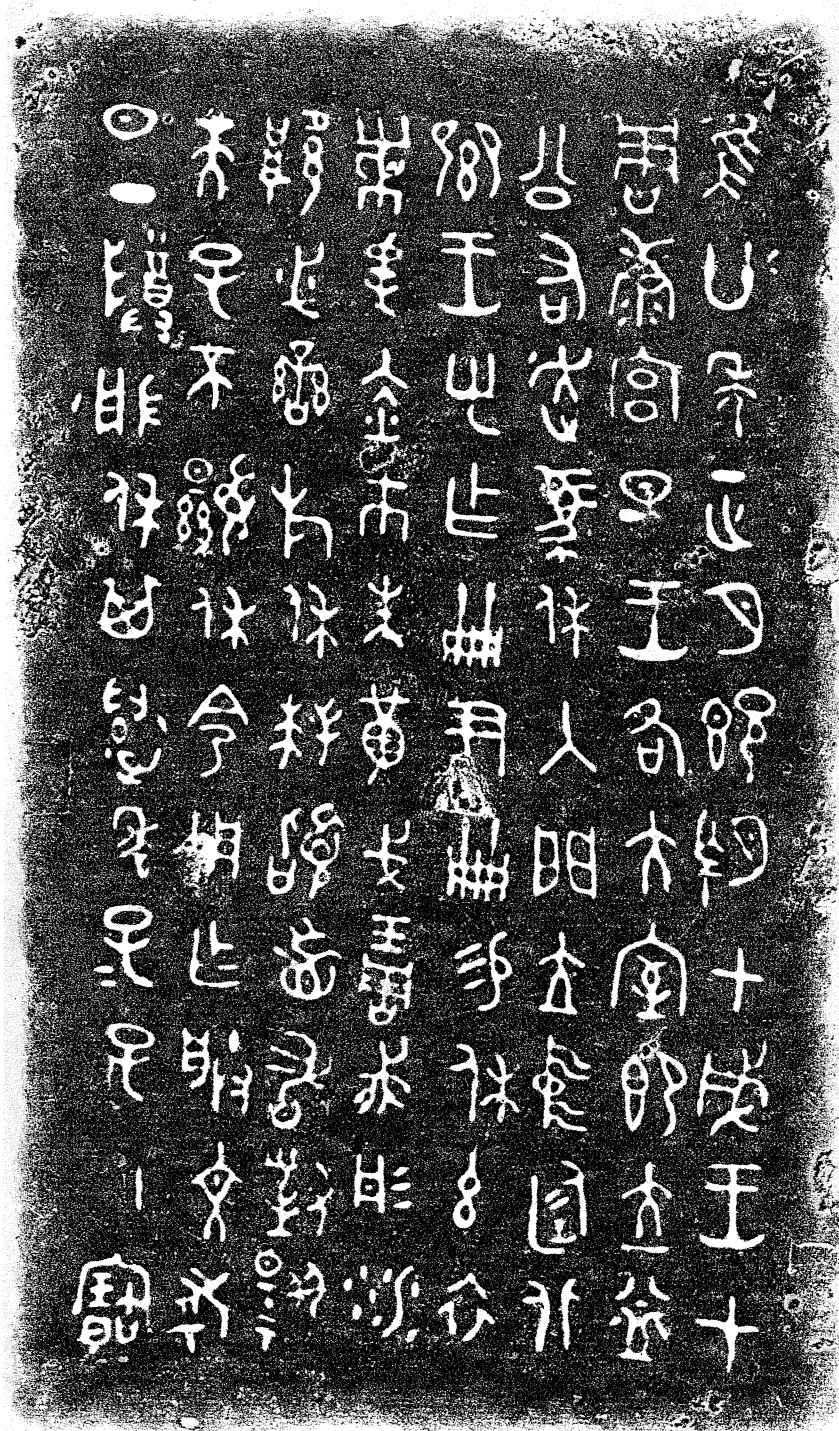 隹廿年正月既望甲戌王才
周康宮旦王各大室即立益
公右走馬休入門立中廷北
鄉王乎乍冊尹冊易休玄衣
黹屯赤市朱黃戈琱胾彤沙
厚必䜌㫃休拜𩒨首敢對揚
天子不顯休令用乍朕文考
日丁尊般休其萬年子子孫孫永寶